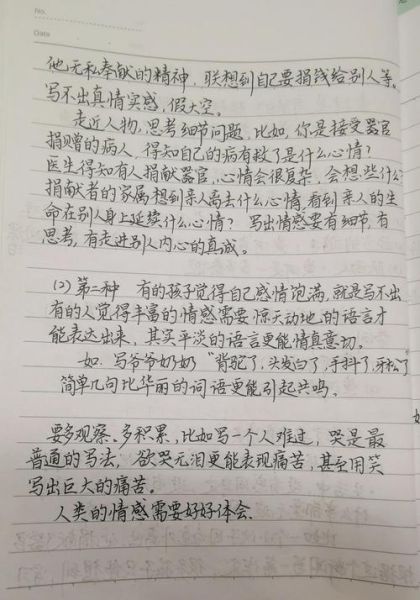 No.
Date
他无私奉献的精神，联想到自己要捐钱给别人等。
写不出真情实感，假大空。
走近人物，思考细节问题，比如，你是接受器官
捐赠的病人，得知自己的病有救了是什么心情？
医生得知有人捐献器官，心情会很复杂，会想些什么
捐献者的家属想到亲人离去什么心情，看到亲人的生
命在别人身上延续什么心情？写出情感要有细节，有
思考，有走进别人内心的真诚。
(2) 第二种 有的孩子觉得自己感情饱满，就是写不出
有的人觉得丰富的情感需要惊天动地的语言才
能表达出来，其实平淡的语言更能情真意切。
如：写爷爷奶奶“背驼了，头发白了，手抖了，牙松了
简单几句比华丽的词语更能引起共鸣。
要多观察、多积累，比如写一个人难过，哭是最
普通的写法，欲哭无泪更能表现痛苦，甚至用笑
写出巨大的痛苦。
人类的情感需要好好体会.